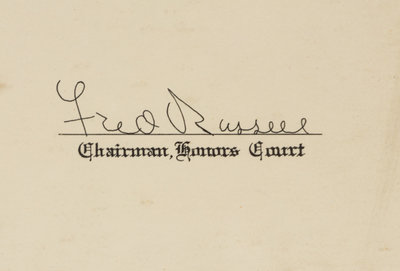 Fred Russell
Chairman, Honors Court